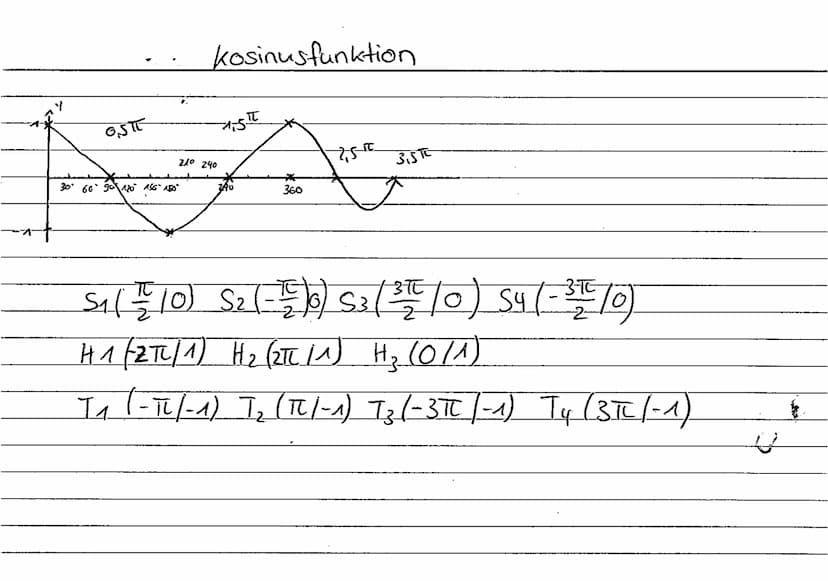 Kosinusfunktion
y
1
0,5π 1,5π
2,5π 3,5π
210 240
30° 60° 90° 120° 150° 180° 270 360
-1
S1(π/2 /0) S2(-π/2)0) S3(3π/2 /0) S4(-3π/2 /0)
H1(-2π/1) H2(2π/1) H3(0/1)
T1(-π/-1) T2(π/-1) T3(-3π/-1) T4(3π/-1)